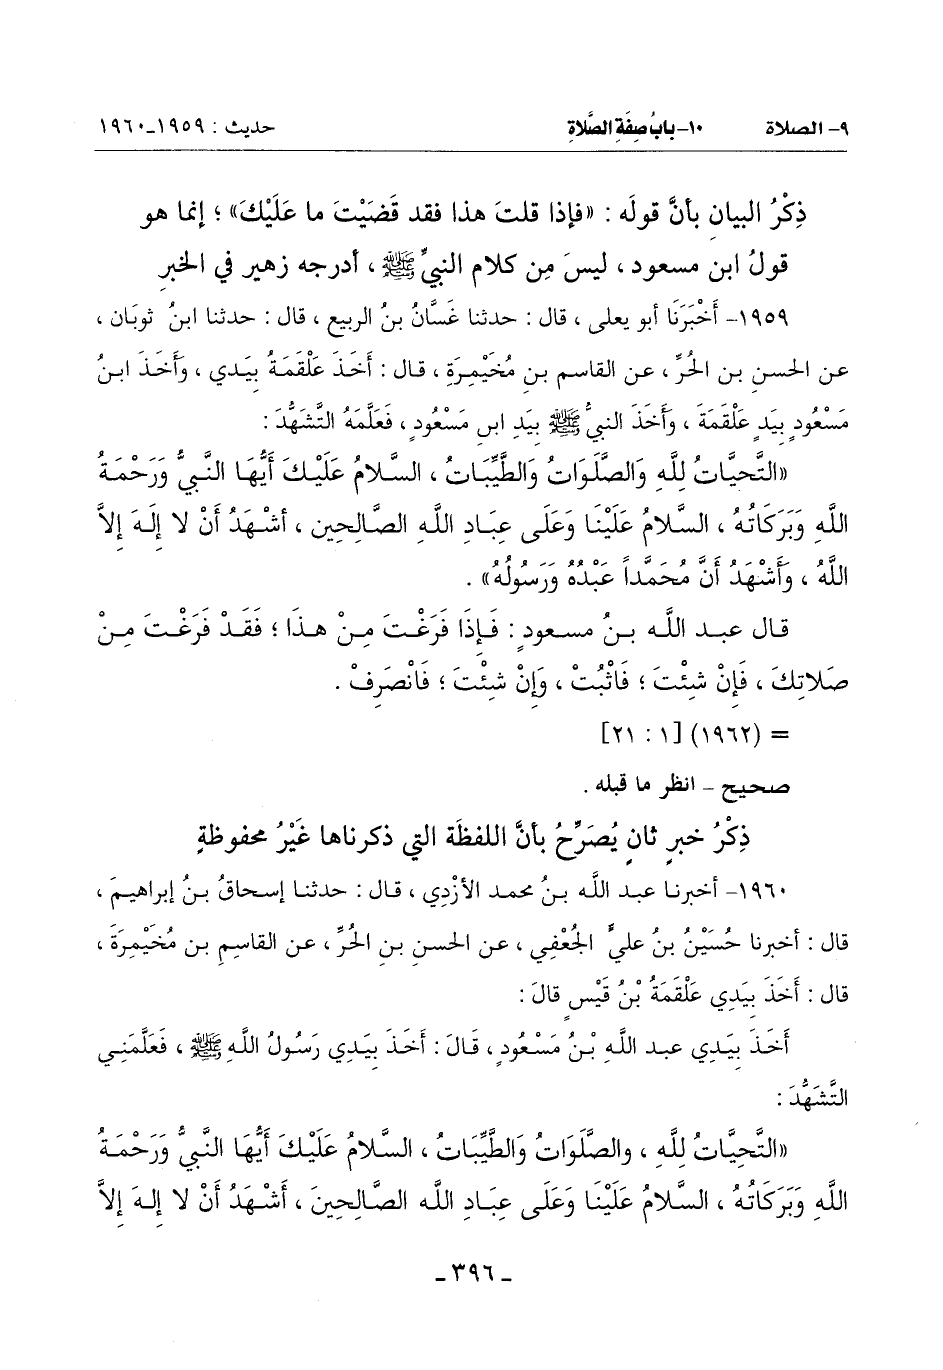 ٩- الصلاة ١٠- بابُ صِفَةِ الصَّلاة حديث : ١٩٥٩-١٩٦٠
ذِكْرُ البيان بأنَّ قولَه : «فإذا قلتَ هذا فقد قَضَيْتَ ما عَلَيْكَ» ؛ إنما هو
قولُ ابن مسعود ، ليسَ مِن كلام النبيِّ ﷺ ، أدرجه زهير في الخبرِ
١٩٥٩- أَخْبَرَنَا أبو يعلى ، قال : حدثنا غَسَّانُ بنُ الربيع ، قال : حدثنا ابنُ ثوبَان ،
عن الحسن بنِ الحُرِّ ، عن القاسمِ بنِ مُخَيْمِرَةِ ، قال : أَخَذَ عَلْقَمَةُ بِيَدي ، وأَخَذَ ابنُ
مَسْعُودٍ بِيَدِ عَلْقَمَةَ ، وَأَخَذَ النبيُّ ﷺ بِيَدِ ابنِ مَسْعُودٍ ، فَعَلَّمَهُ التَّشَهُّدَ :
«التَّحِيَّاتُ لِلَّهِ وَالصَّلَوَاتُ وَالطَّيِّبَاتُ ، السَّلامُ عَلَيْكَ أَيُّهَا النَّبيُّ وَرَحْمَةُ
اللَّهِ وَبَرَكَاتُهُ ، السَّلامُ عَلَيْنَا وَعَلَى عِبَادِ اللَّهِ الصَّالِحِين ، أشْهَدُ أَنْ لا إِلَهَ إِلاَّ
اللَّهُ ، وَأَشْهَدُ أَنَّ مُحَمَّداً عَبْدُهُ وَرَسُولُهُ» .
قال عبد اللَّه بنُ مسعودٍ : فَإِذَا فَرَغْتَ مِنْ هذَا ؛ فَقَدْ فَرَغْتَ مِنْ
صَلاتِكَ ، فَإِنْ شِئْتَ ؛ فَاثْبُتْ ، وَإِنْ شِئْتَ ؛ فَانْصَرِفْ .
= (١٩٦٢) [١ : ٢١]
صحيح - انظر ما قبله .
ذِكْرُ خبرٍ ثانٍ يُصَرِّحُ بأنَّ اللفظَة التي ذكرناها غَيْرُ محفوظةٍ
١٩٦٠- أخبرنا عبد اللَّه بنُ محمد الأزْدِي ، قال : حدثنا إسحاقُ بنُ إبراهيمَ ،
قال : أخبرنا حُسَيْنُ بنُ عليٍّ الجُعْفِي ، عن الحسن بنِ الحُرِّ ، عن القاسمِ بن مُخَيْمِرَةَ ،
قال : أَخَذَ بِيَدِي عَلْقَمَةُ بْنُ قَيْسٍ قالَ :
أَخَذَ بِيَدِي عبد اللَّهِ بْنُ مَسْعُودٍ ، قَالَ : أَخَذَ بِيَدِي رَسُولُ اللَّهِ ﷺ ، فَعَلَّمَنِي
التَّشَهُّدَ :
«التَّحِيَّاتُ لِلَّهِ ، والصَّلَوَاتُ وَالطَّيِّبَاتُ ، السَّلامُ عَلَيْكَ أَيُّهَا النَّبيُّ وَرَحْمَةُ
اللَّهِ وَبَرَكَاتُهُ ، السَّلامُ عَلَيْنَا وَعَلَى عِبَادِ اللَّه الصَّالِحِينَ ، أَشْهَدُ أَنْ لا إِلهَ إِلاَّ
- ٣٩٦ -